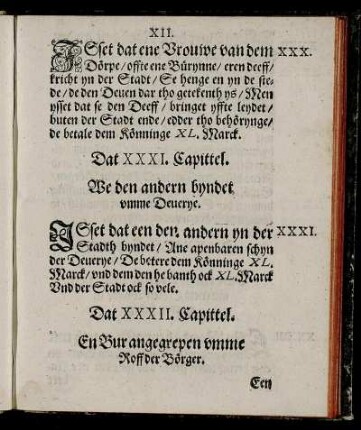 XII.
ISset dat ene Vrouwe van dem XXX.
Dörpe/ offte ene Bürynne/ eren deeff/
kricht yn der Stadt/ Se henge en yn de ste-
de/ de den Deuen dar tho getekenth ys/ Men
ysset dat se den Deeff/ bringet yffte leydet/
buten der Stadt ende/ edder tho behörynge/
de betale dem Könninge XL. Marck.
Dat XXXI. Capittel.
We den andern byndet
vmme Deuerye.
ISset dat een den andern yn der XXXI.
Stadth byndet/ Ane apenbaren schyn
der Deuerye/ De betere dem Könninge XL.
Marck/ vnd dem den he banth ock XL. Marck
Vnd der Stadt ock so vele.
Dat XXXII. Capittel.
En Bur angegrepen vmme
Roff der Börger.
Een